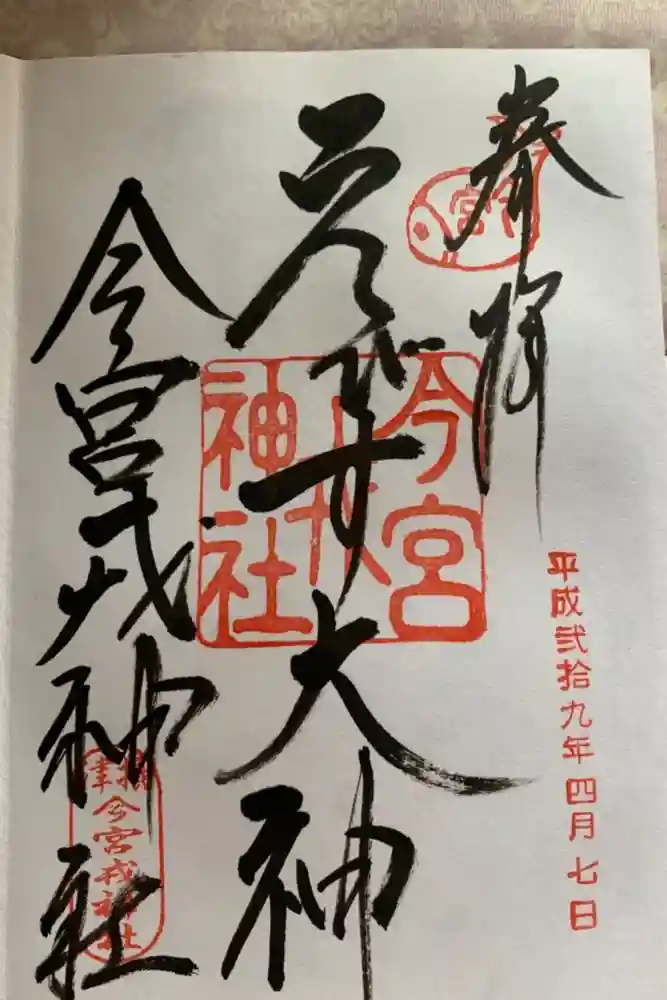 奉拝
今宮
平成弐拾九年四月七日
ゑびす大神
今宮
戎
神社
今宮戎神社
摂津
今宮戎神社